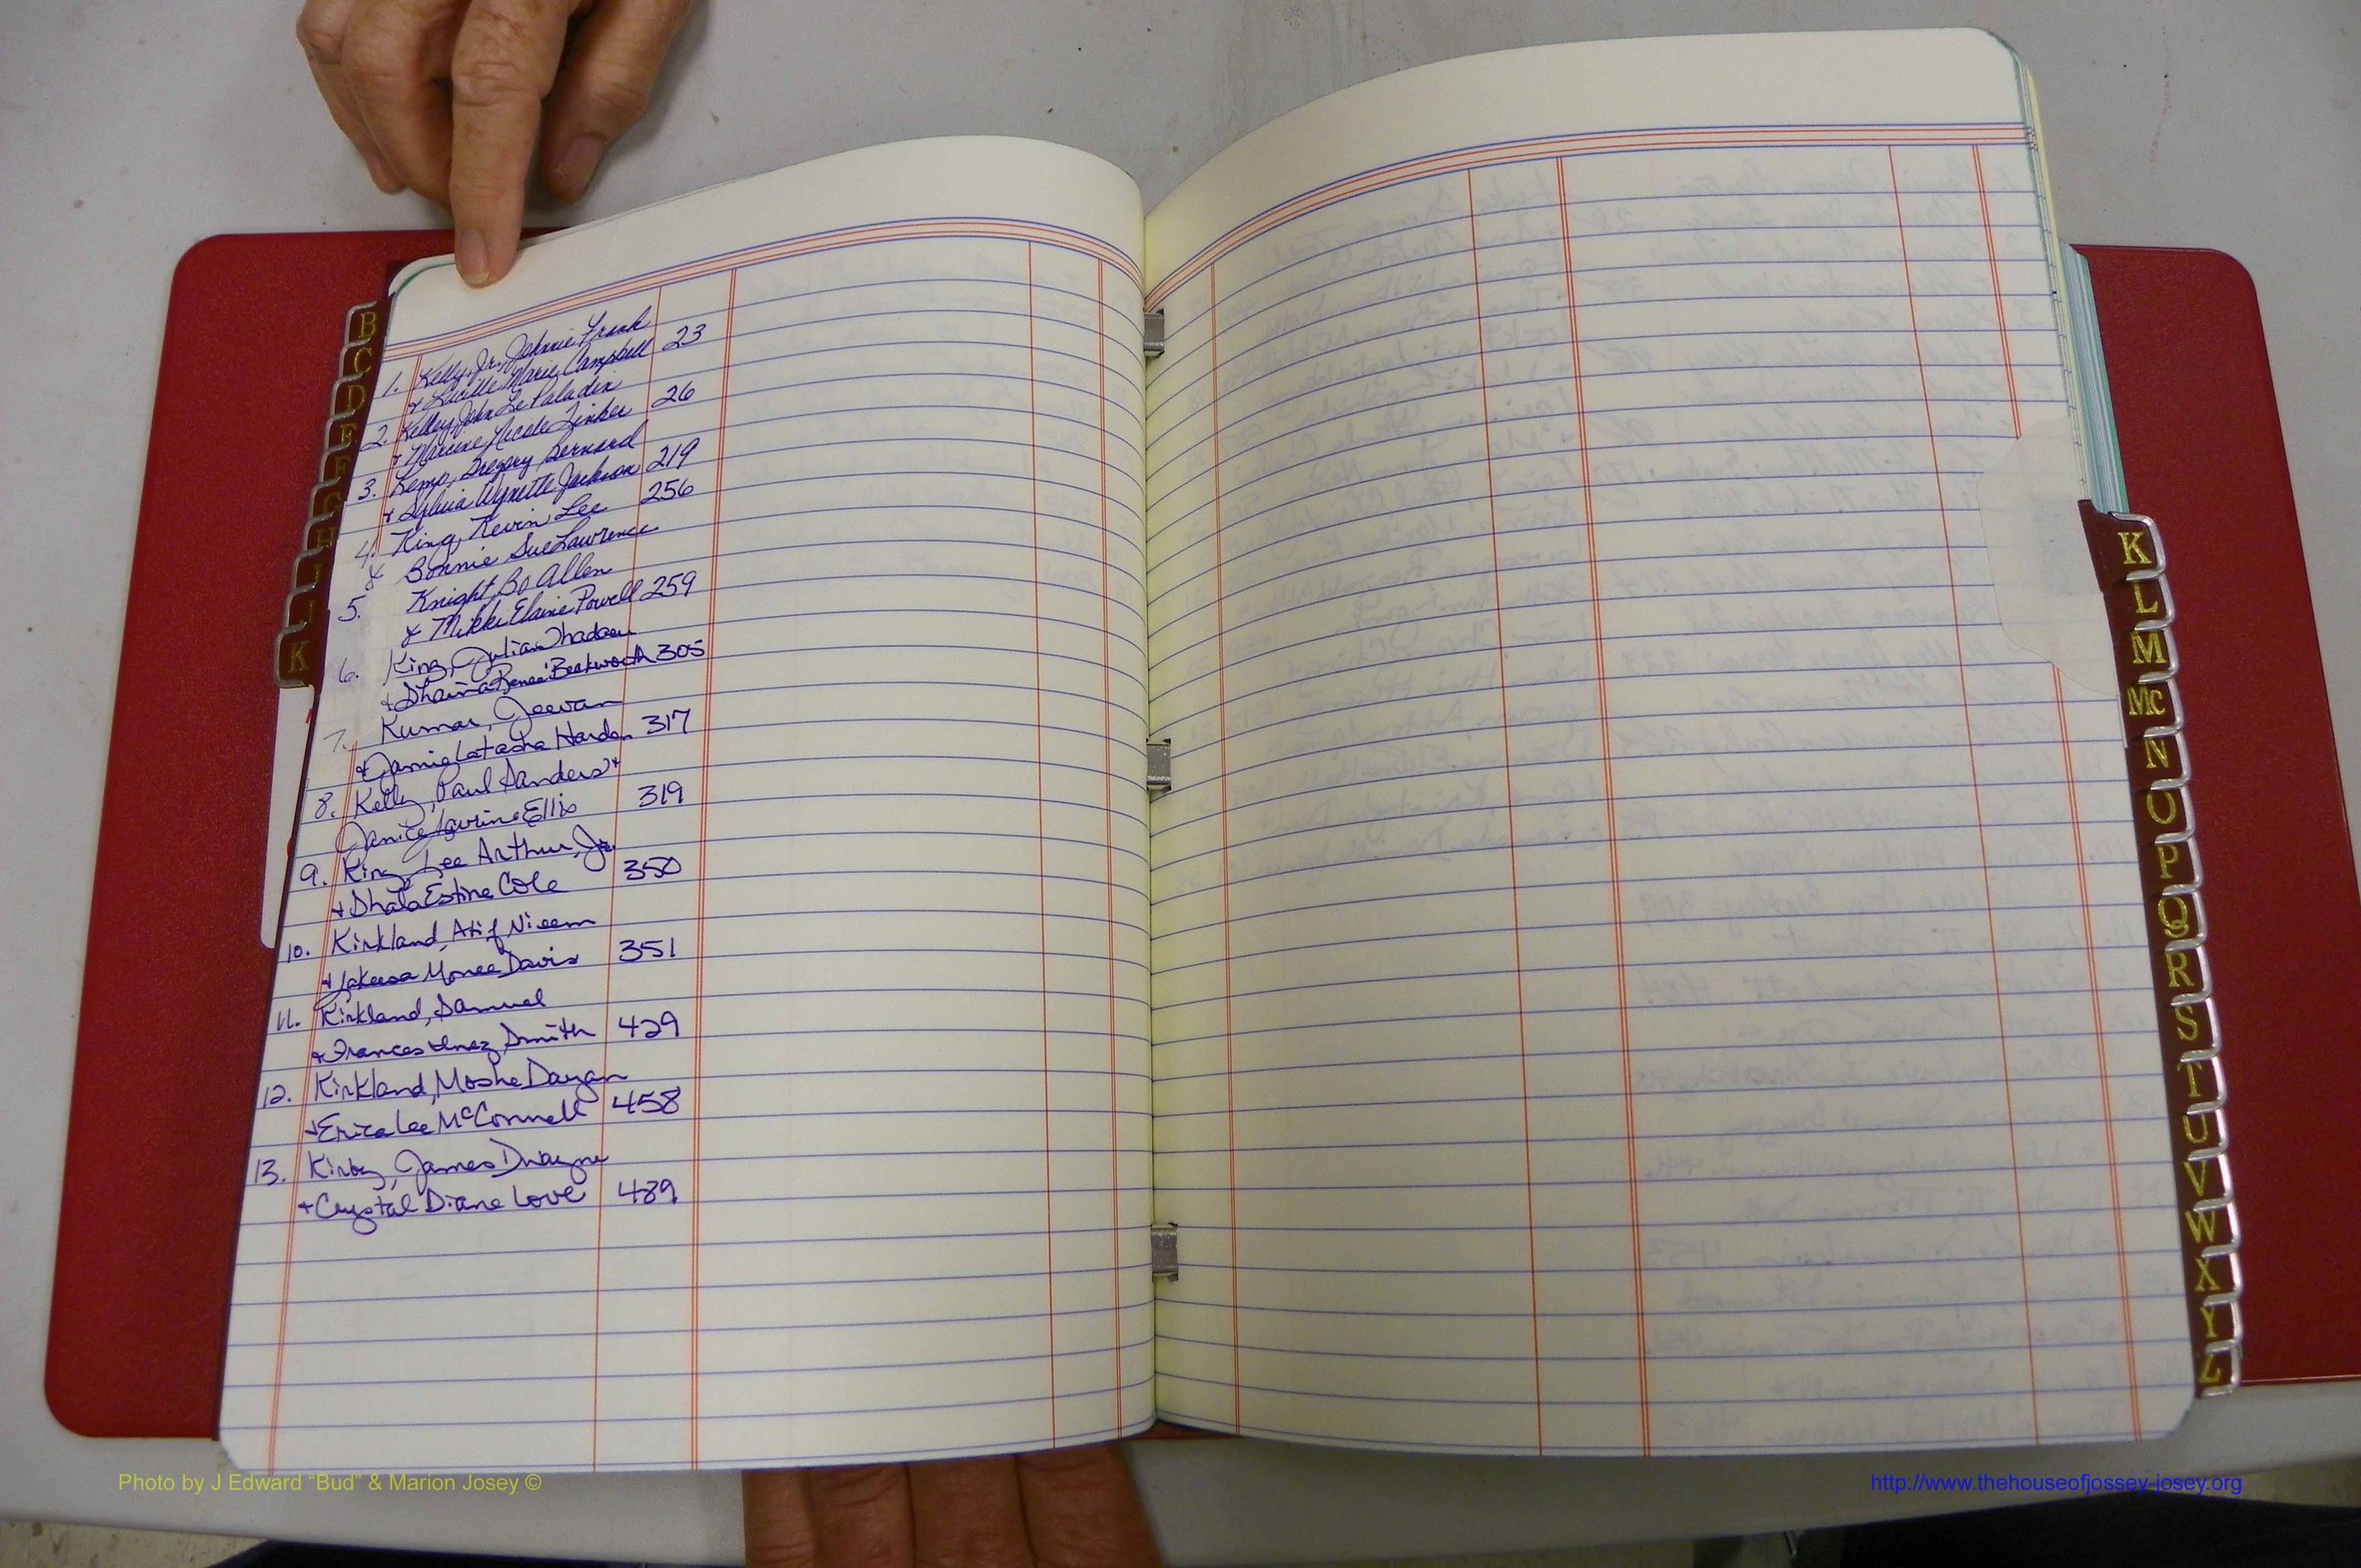 1. Kelly, Jr., Johnnie Frank
& Lucille Marie Campbell 23
2. Kelley, John Le Paladin
& Marcene Nicole Tinker 26
3. Kemp, Gregory Bernard
& Sylvia Wynette Jackson 219
4. King, Kevin Lee 256
& Bonnie Sue Lawrence
5. Knight, Bo Allen
& Mikki Elaine Powell 259
6. King, Julian
& Renee 305
7. Kumar, Jeevan
& Jamie Latasha Harden 317
8. Kelly, Paul Sanders +
Janice Laurine Ellis 319
9. King, Lee Arthur, Jr.
+ Shala Estine Cole 350
10. Kirkland, Atif Nieem
+ Monee Davis 351
11. Kirkland, Samuel
& Frances Inez Smith 429
12. Kirkland, Moshe Dayan
+ Erica Lee McConnell 458
13. Kirby, James Dwayne
+ Crystal Diane Love 489
B
C
D
E
F
G
H
I
J
K
K
L
M
Mc
N
O
P
Q
R
S
T
U
V
W
X
Y
Z
Photo by J Edward "Bud" & Marion Josey ©
http://www.thehouseofjossey-josey.org